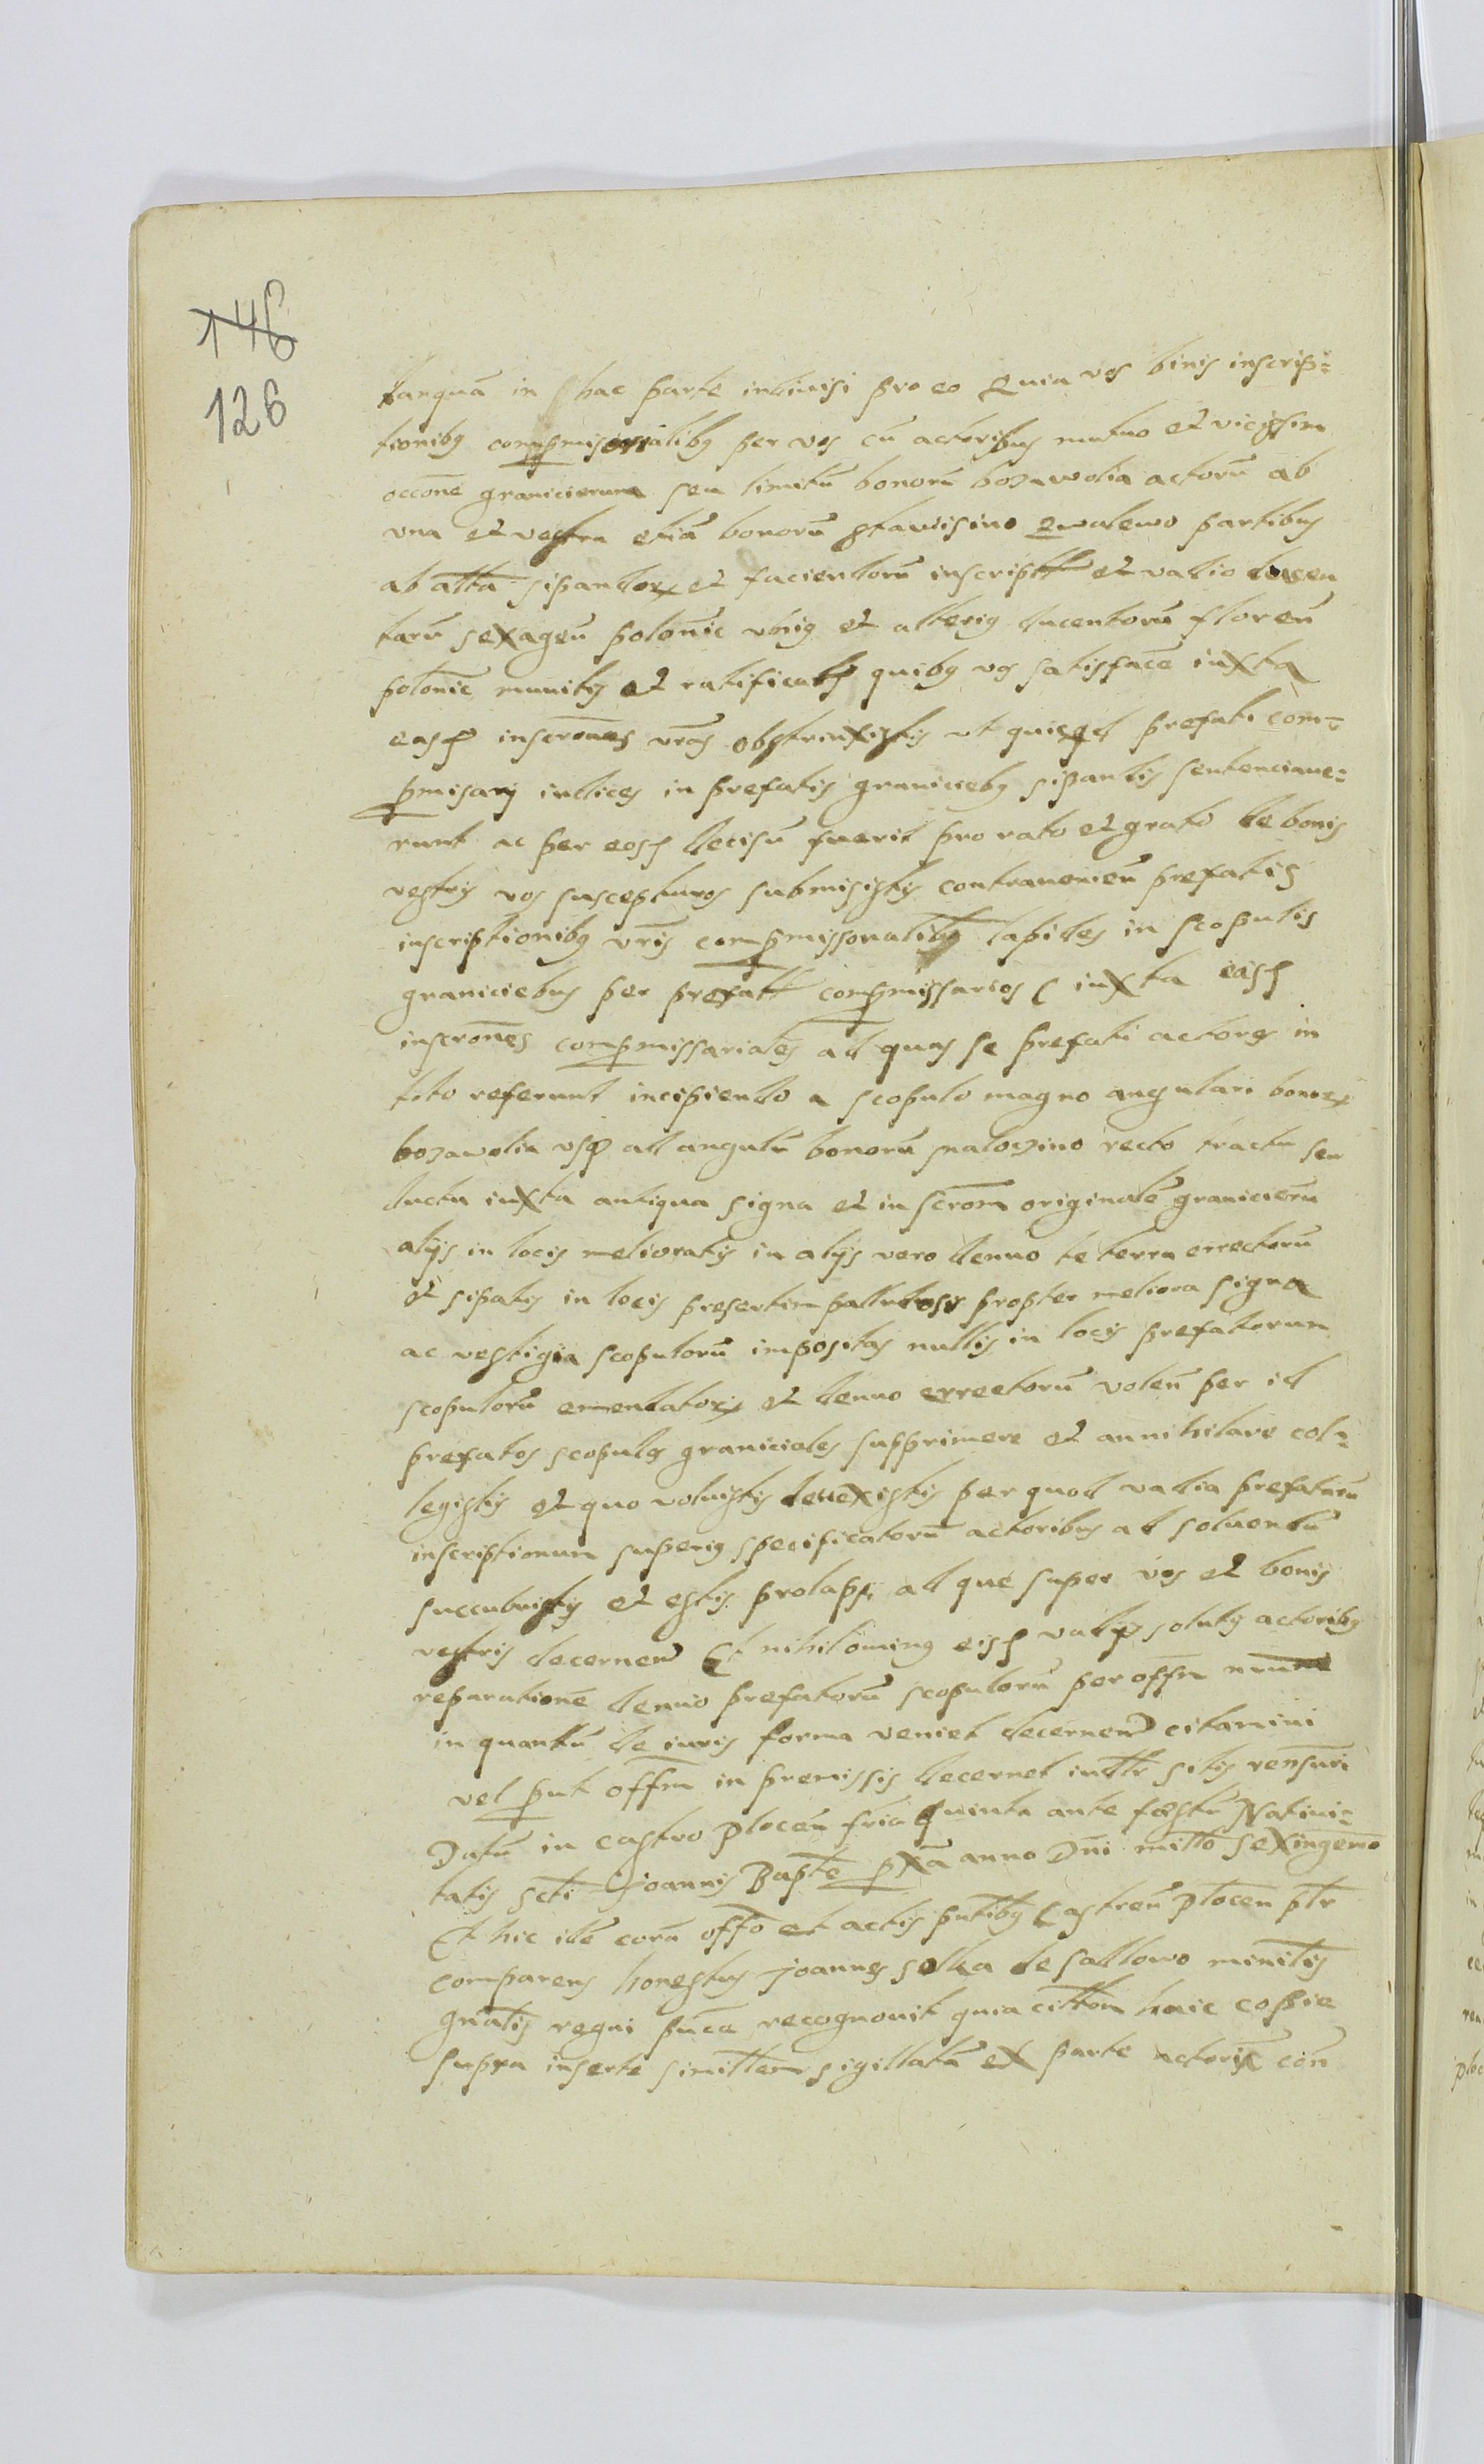 146
126
tanquā in hac parte indiuisi pro eo Quia vos binis inscrip=
tionibꝫ compromissorialibꝫ per vos cū actoribus mutuo et vicissim
occōne granicierum seu limitū bonorū bozawolia actorū ab
vna et vestra etiā bonorū stawisino qwalewo partibus
ab altā sipandoꝝ et faciendorū inscriptt et vadio ducen
tarū sexagēn polonic vnīꝰ et alteriꝰ ducentorū florēn
polonic munitis et ratificatis quibꝫ vos satisfacē iuxta
easd inscrōnes vrās obstrinxistis vt quicqd prefati com=
promisarij iudices in prefatis graniciebꝫ sipandis sentenciaue=
runt ac per eosd decisū fuerit pro rato et grato de bonis
vestris vos suscepturos submisistis contrauenien prefatis
inscriptionibꝫ vrīs compromissorialibꝫ lapides in scopulis
graniciebus per prefatt compromissarios iuxta easd
inscrōnes compromissariales ad quas se prefati actores in
toto referunt incipiendo a scopulo magno angulari bonoꝝ
bozawolia vsqꝫ ad angulū bonorū maloczino recto tractu seu
ductu iuxta antiqua signa et inscrōm originalē granicierū
alijs in locis melioratis in alijs vero denuo de terra errectorū
et sipatis in locis presertim palludosis propter meliora signa
ac vestigia scopulorū impositas nullis in locis prefatorum
scopulorū emendatoꝝ et denuo errectorū volēn per id
prefatos scopulos graniciales supprimere et annihilare col=
legistis et quo voluistis deuexistis per quod vadia prefatarū
inscriptionum superiꝰ specificatorū actoribus ad soluendū
succubuistis et estis prolapsi ad que super vos et bonis
vestris decernen Et nihilominꝰ eisd vadijs solutis actoribꝫ
reparationē denuo prefatorū scopulorū per offm nrūm
in quantū de iuris forma veniet decernen citamini
vel prout offm in premissis decernet iudtr sitis rensuri
Datū in castro plocēn fria quinta ante festū Natiui=
tatis scti Joannis Bapte proxa anno Dni millo sexingemo
Et hic idē corā offo et actis pntibꝫ Castrēn plocēn ptr
comparens honestus Joannes solka de salkowo minitlis
gnalis regni pnce recognouit quia cittōm huic copie
supra inserte simillem sigillatā ex parte actorū cōn